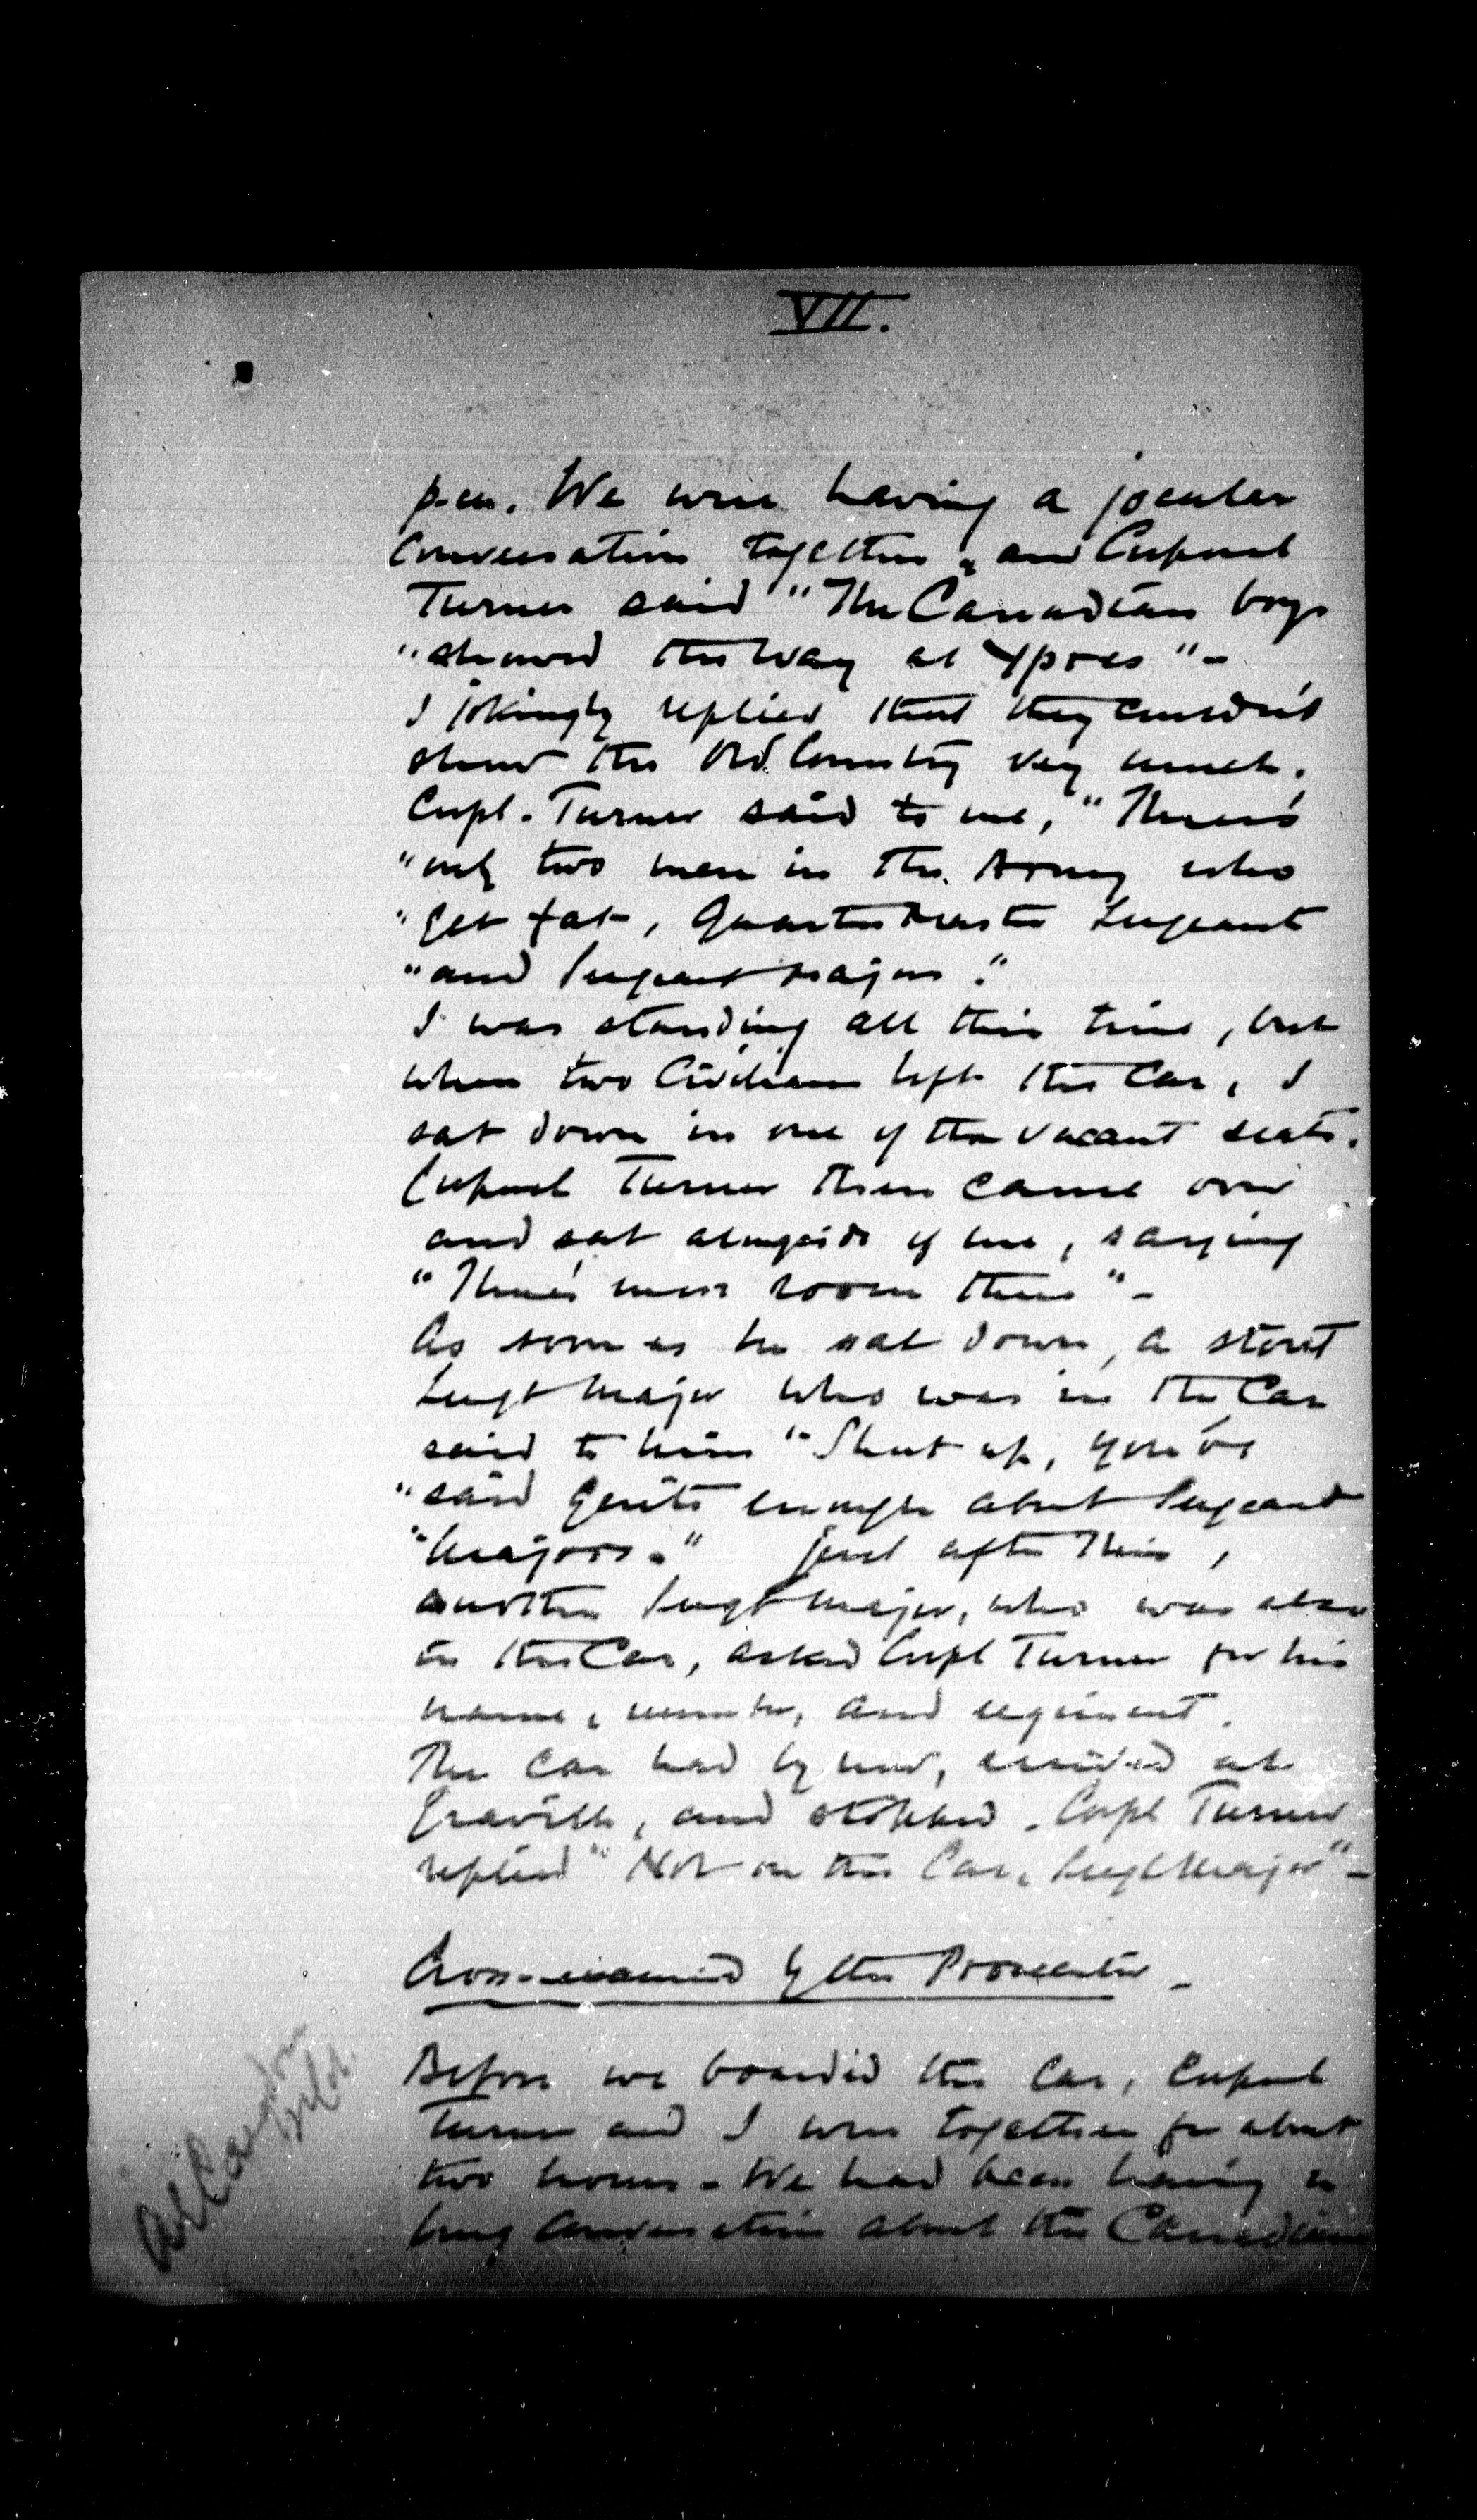 VII.
p.m. We were having a jocular
conversation together, and Corporal
Turner said "The Canadian boys
"showed the way at Ypres" -
I jokingly replied that they couldn't
show the Old Country very much.
Corpl. Turner said to me, "There's
"only two men in the Army who
"get fat, Quarter Master Sergeant
"and Sergeant Major."
I was standing all this time, but
when two Civilians left the Car, I
sat down in one of the vacant seats.
Corporal Turner then came over
and sat alongside of me, saying
"There's more room there" -
As soon as he sat down, a stout
Sergt Major who was in the Car
said to him "Shut up, you've
"said quite enough about Sergeant
"Majors." Just after this,
another Sergt Major, who was also
in the Car, asked Corpl Turner for his
name, number, and regiment.
The Car had by now, arrived at
Graville, and stopped. Corpl Turner
replied "Not on this Car, Sergt Major" -
Cross-examined by the Prosecutor -
Before we boarded the Car, Corporal
Turner and I were together for about
two hours. We had been having a
long conversation about the Canadians